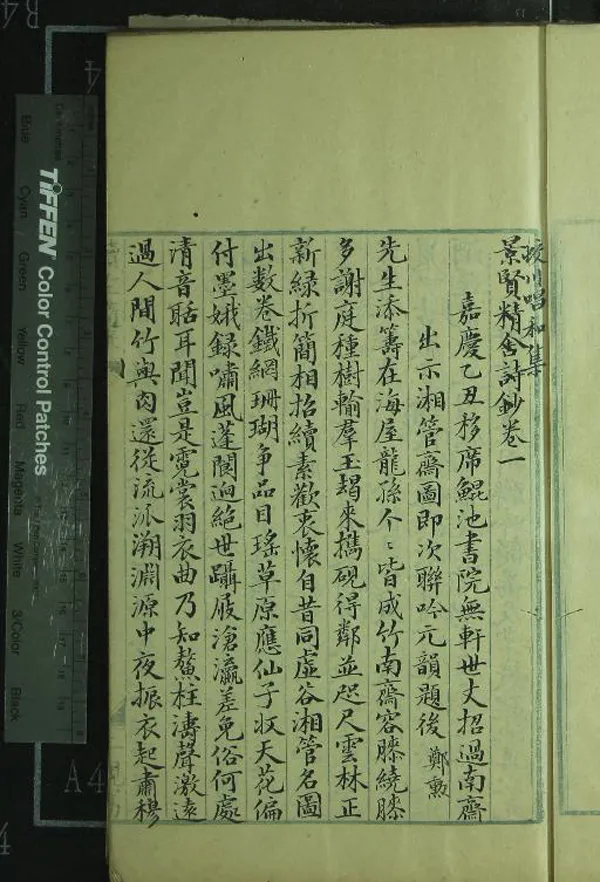 景賢精舍詩鈔卷一
唱和集
嘉慶乙丑移席鯤池書院無軒世丈招過南齋
出示湘管齋圖即次聯吟元韻題後 鄭勲
先生添籌在海屋龍孫个〻皆成竹南齋容膝繞膝
多謝庭種樹輸羣玉朅來攜硯得鄰並咫尺雲林正
新緑折簡相招續素歡衷懷自昔同虛谷湘管名圖
出数卷鐵網珊瑚争品目瑤草原應仙子収天花偏
付墨娥録嘯風蓬閬迥絕世躡屐滄瀛差免俗何處
清音聒耳聞豈是霓裳羽衣曲乃知鰲柱濤聲激遠
過人間竹與肉還從流派溯淵源中夜振衣起肅穆
TIFFEN Color Control Patches
Blue
Cyan
Green
Yellow
Red
Magenta
White
3/Color
Black
A4